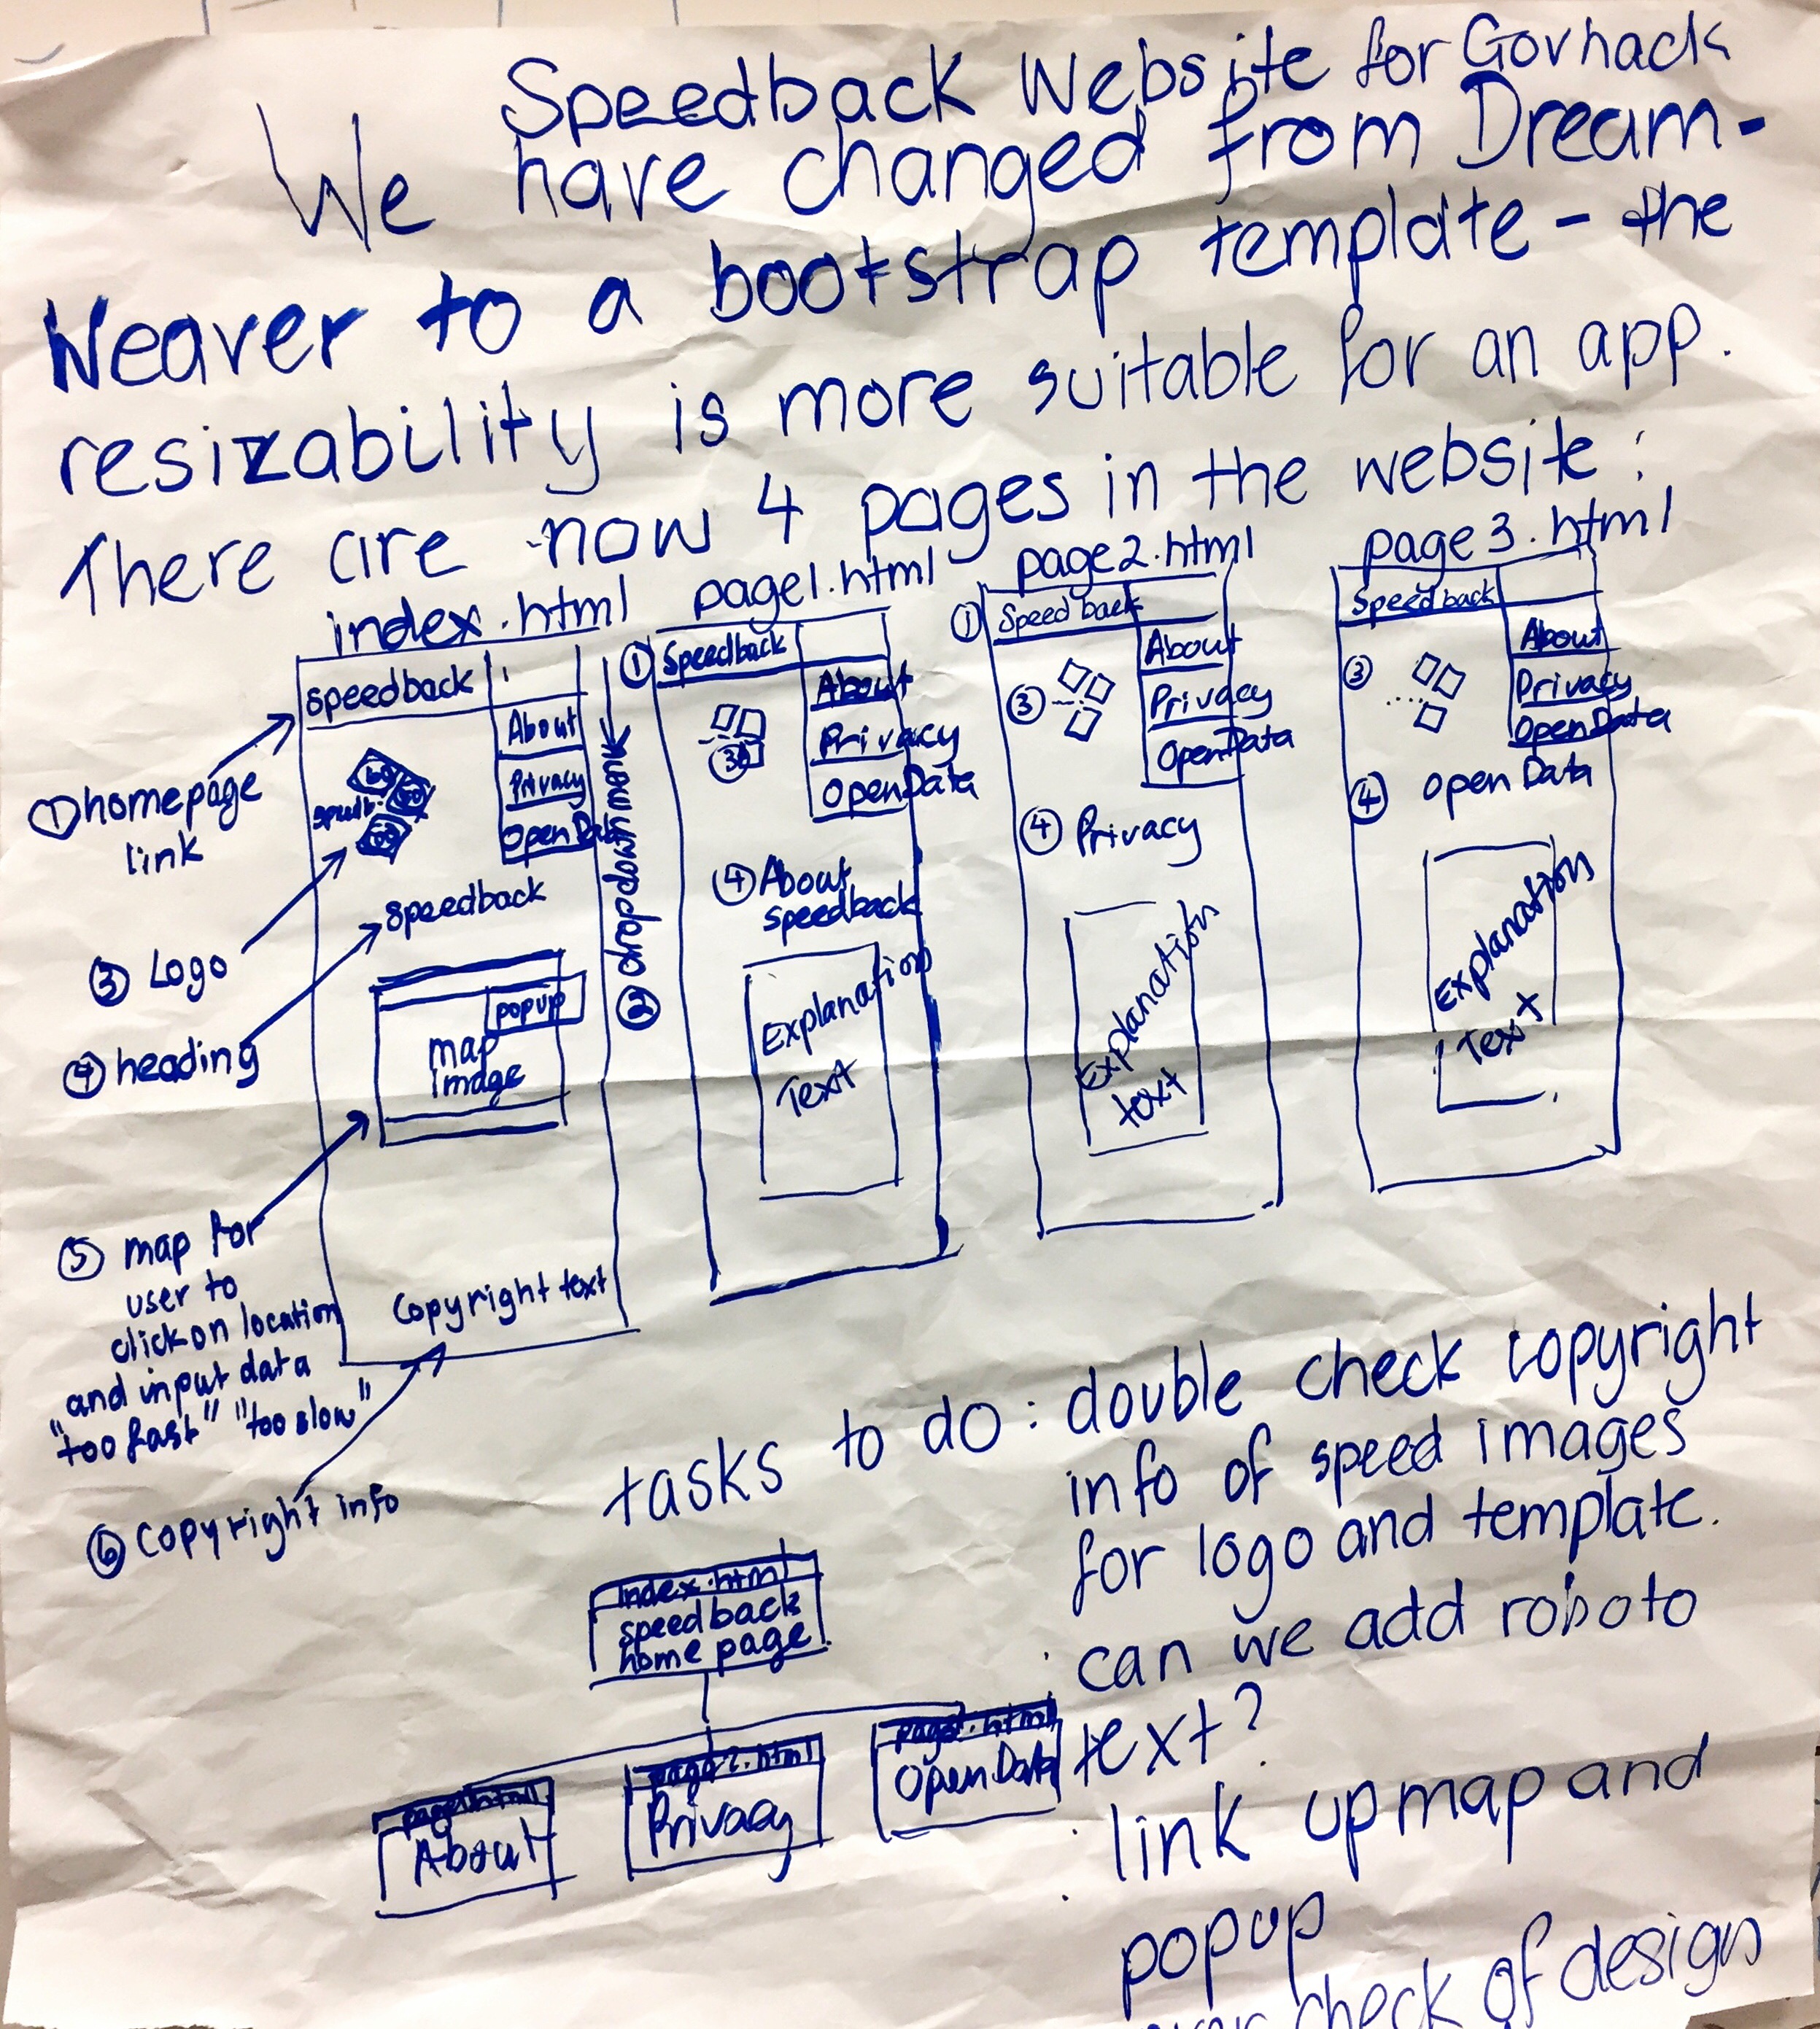 Speedback Website for Govhack
We have changed from Dream-
Weaver to a bootstrap template - the
resizability is more suitable for an app.
There are now 4 pages in the website:
index.html
speedback
About
Privacy
OpenData
speedback
map
image
popup
Copyright text
① homepage
link
② dropdown menu
③ Logo
④ heading
⑤ map for
user to
click on location
and input data
"too fast" "too slow"
⑥ Copyright info
page1.html
① Speedback
About
Privacy
OpenData
③
④ About
speedback
Explanation
Text
page2.html
① Speedback
About
Privacy
OpenData
③
④ Privacy
Explanation
text
page3.html
Speedback
About
Privacy
OpenData
③
④ Open Data
Explanation
Text
tasks to do: double check copyright
info of speed images
for logo and template.
can we add roboto
text?
link up map and
popup
check of design
index.html
speedback
home page
page1.html
About
page2.html
Privacy
Open Data